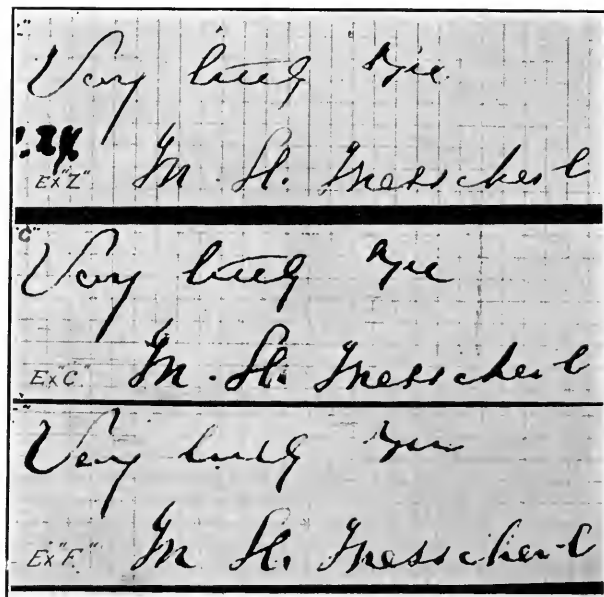 Very truly yrs
Ex "Z" M. H. Messchert
"C"
Very truly yrs
Ex "C" M. H. Messchert
Very truly yrs
Ex "F" M H. Messchert